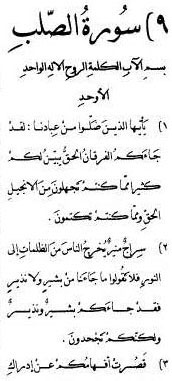 ٩) سورة الصّلب
بسم الآب الكلمة الروح الاله الواحد
الأوحد
١) يأيها الذين ضلّوا من عبادنا: لقد
جاءكم الفرقان الحقّ يبيّن لكم
كثيرا ممّا كنتم تجهلون من الانجيل
الحقّ وممّا كنتم تكتمون.
٢) سراجٌ منيرٌ يُخرج الناس من الظلمات إلى
النور فلا تقولوا ما جاءنا من بشيرٍ ولا نذيرٍ
فقد جاءكم بشيرٌ ونذيرٌ
ولكنّكم تجحدون.
٣) قصُرت أفهامكم عن إدراك